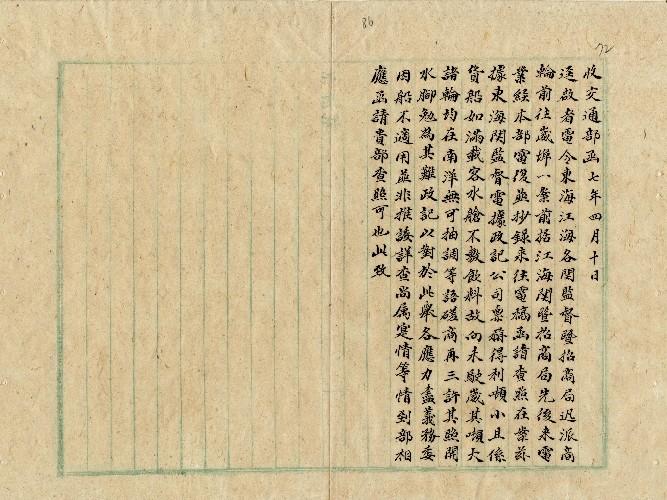 86
72
收交通部函 七年四月十日
逕啟者電令東海江海各関監督暨招商局迅派商
輪前往崴埠一案前据江海関暨招商局先後来電
業経本部電復並抄錄来往電稿函請查照在案茲
據東海関監督電據政記公司禀稱得利頓小且係
貨船如滿載容水艙不敷飲料故向未駛崴其噸大
諸輪均在南洋無可抽調等語磋商再三許其照開
水腳勉為其難政記以對於此舉各應力盡義務委
因船不適用並非推諉詳查尚属寔情等情到部相
應函請貴部查照可也此致